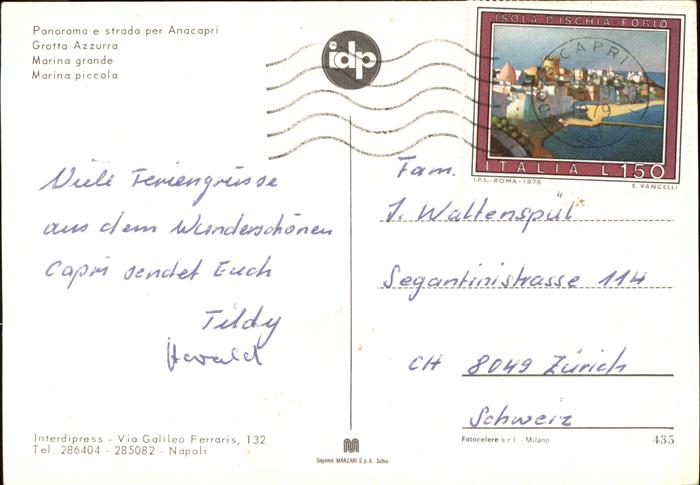 Panorama e strada per Anacapri
Grotta Azzurra
Marina grande
Marina piccola
idp
ISOLA D'ISCHIA-FORIO
CAPRI
ITALIA L.150
I.P.S.-ROMA-1976 E. VANGELLI
Viele Feriengrüsse
aus dem Wunderschönen
Capri sendet Euch
Tildy
Harald
Fam.
J. Waltenspül
Segantinistrasse 114
CH 8049 Zürich
Schweiz
Interdipress - Via Galileo Ferraris, 132
Tel. 286404 - 285082 - Napoli
Sagoma MARZARI S.p.A. Schio
Fotocelere s.r.l. - Milano 435